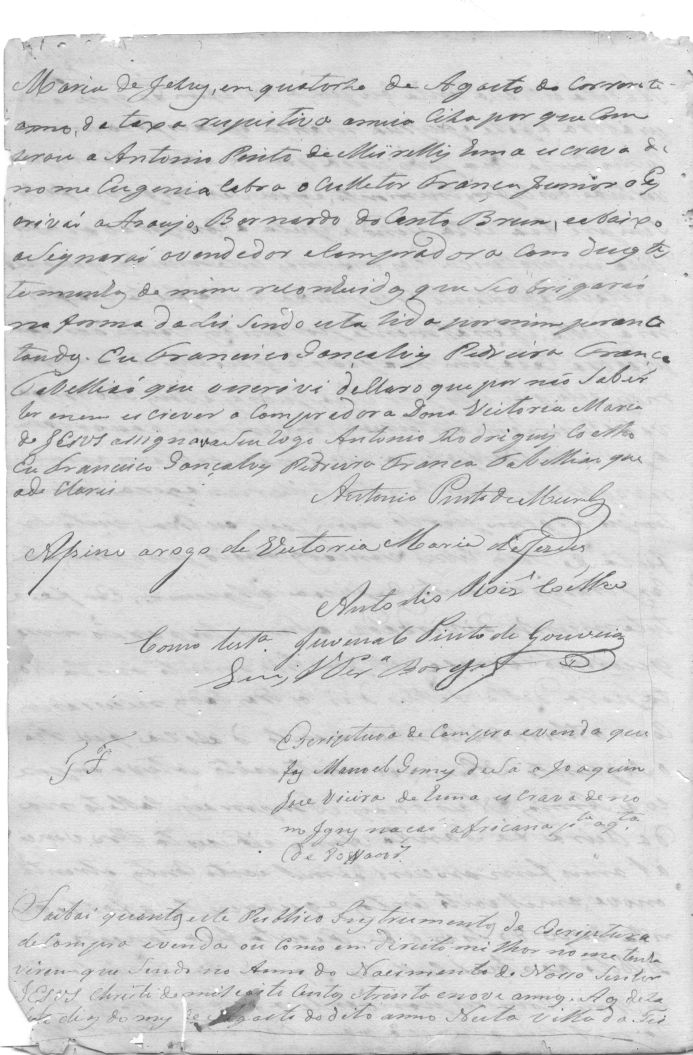 Maria de Jesus, em quatorse de Agosto do corrente
anno, da taxa respectiva a meia Ciza por que Com
prou a Antonio Pinto de Meirelles huma escrava de
nome Eugenia Cabra o Colletor Franca Junior o Es
crivaõ Araujo, Bernardo do Canto Brum, e abaixo
asignaraõ o vendedor e Compradora Com as
testemunhas de mim reconhecidas que se obrigaraõ
na forma da Lei Sendo esta lida por mim perante
todos. Eu Francisco Gonçalves Pedreira França
Tabelliaõ que o escrevi declaro que por não Saber
ler e nem escrever a Compradora Dona Victoria Maria
de JESUS assignava Seu rogo Antonio Rodrigues Coelho
Eu Francisco Gonçalves Pedreira Franca Tabelliaõ que
o declarei
Antonio Pinto de Meirelles
Asino arogo de Victoria Maria de Jesus
Antonio Roiz Coelho
Como testa. Juvenal Pinto de Gouveia
Pera Borges
Escriptura de Compra e venda que
faz Manoel Gomes de Sá a Joaquim
Jose Vieira de huma escrava de no
me Ignes nacaõ africana pla qta.
de
Saibaõ quantos este Publico Instrumento de Escriptura
de Compra e venda ou Como em direito milhor nome tenha
virem que Sendo no Anno do Nascimento de Nosso Senhor
JESUS Christo de mil oito Centos trinta e nove annos. Aos
dias do mez de Agosto do dito anno Nesta Villa da Fei